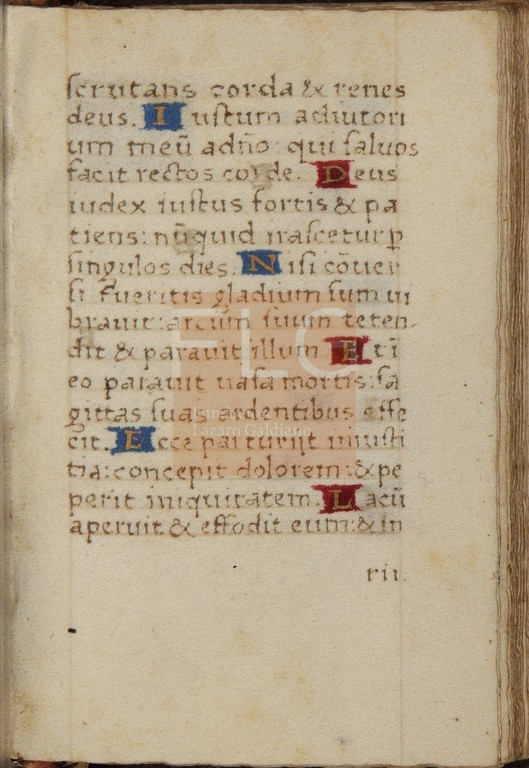 scrutans corda & renes
deus. Iustum adiutori
um meũ adño: qui saluos
facit rectos corde. Deus
iudex iustus fortis & pa
tiens: nũquid irascetur p̃
singulos dies. Nisi cõuer
si fueritis gladium sum ui
brauit: arcum suum teten
dit & parauit illum Et ĩ
eo parauit uasa mortis: sa
gittas suas ardentibus effe
cit. Ecce parturijt iniusti
tia: concepit dolorem: & pe
perit iniquitatem. Lacũ
aperuit & effodit eum: & in
rii.
FLG
Lázaro Galdiano